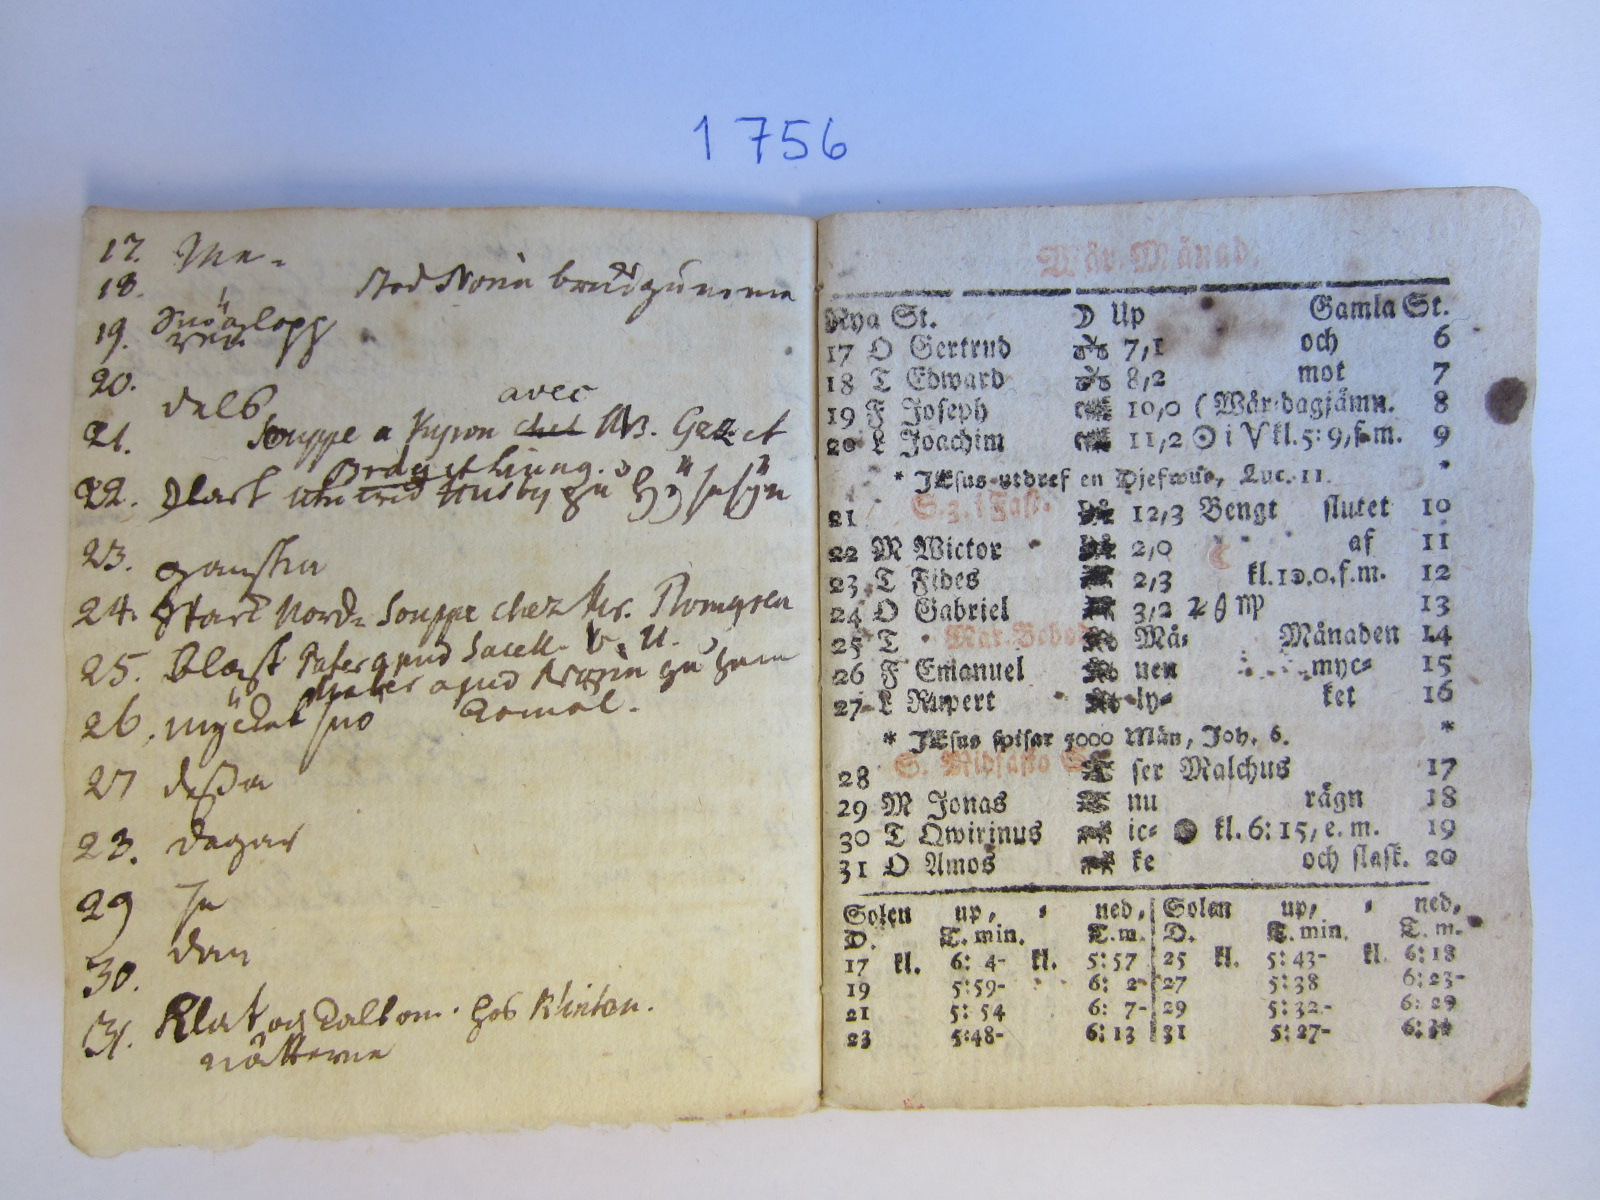 1756
17. Me-
18. stod Norin brudgumme
19. Snöadlopp
20.
dels
avec
21. Souppe a Kyron chet MB. Gez et
22. Klart
23.
ganska
24. Start Nord- Souppe chez Mr. Blomgren
25. Blåst Pater apud Sacell. V. U.
26. mycket snö
27 dessa
28. dagar
29
30. dan
31. Klat och Kalt om. hos Klinton.
nätterne
Mår-Månad.
Nya St. D Up Gamla St.
17 O Gertrud 7,1 och 6
18 T Edward 8,2 mot 7
19 F Joseph 10,0 ( Wår-dagjämn. 8
20 L Joachim 11,2 ☉ i V kl. 5: 9, f. m. 9
* JEsus utdref en Djefwul, Luc. 11. *
21 S. 3. i Fast. 12,3 Bengt slutet 10
22 M Wictor 2,0 af 11
23 T Fides 2,3 kl. 10.0. f. m. 12
24 O Gabriel 3,2 13
25 T Mar. Bebod. Må- Månaden 14
26 F Emanuel nen myc- 15
27 L Rupert ly- ket 16
* JEsus spisar 5000 Män, Joh. 6. *
28 S. Midfasto S. ser Malchus 17
29 M Jonas nu rägn 18
30 T Qwirinus ic- ● kl. 6: 15, e. m. 19
31 O Amos ke och slask. 20
Solen up, - ned, Solen up, - ned,
D. T. min. T. m. D. T. min. T. m.
17 kl. 6: 4- kl. 5:57 25 kl. 5:43- kl. 6:18
19 5:59- 6: 2- 27 5:38 6:23-
21 5: 54 6: 7- 29 5:32- 6: 29
23 5:48- 6:13 31 5:27- 6:34